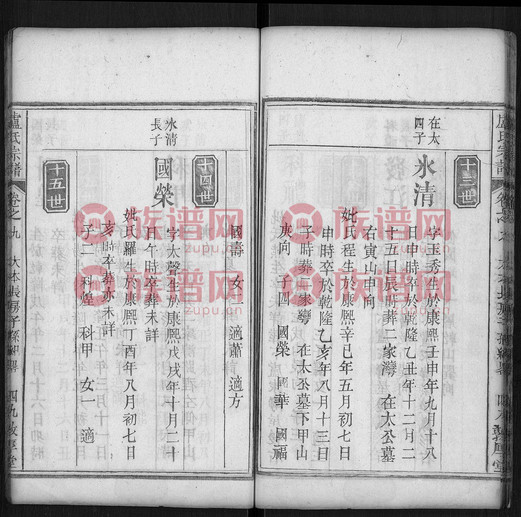 十三世
在太
四子
水清
字玉秀生於康熙壬申年九月十八
日申時卒於乾隆乙丑年十二月二
十五日辰時葬二家灣 在太公墓
右寅山申向
妣氏程生於康熙辛巳年五月初七日
子時卒於乾隆乙亥年八月十三日
子時葬二家灣 在太公墓下甲山
庚向 子四 國榮 國華 國福
國壽 女二 適蕭 適方
十四世
水清
長子
國榮
字太聲生於康熙戊戌年十月二十
日午時卒葬未詳
妣氏羅生於康熙丁酉年八月初七日
亥時卒葬亦未詳
子二 科煌 科甲 女一 適
十五世
盧氏宗譜
卷之九
四九 敦厚堂
族谱网
zupu.cn